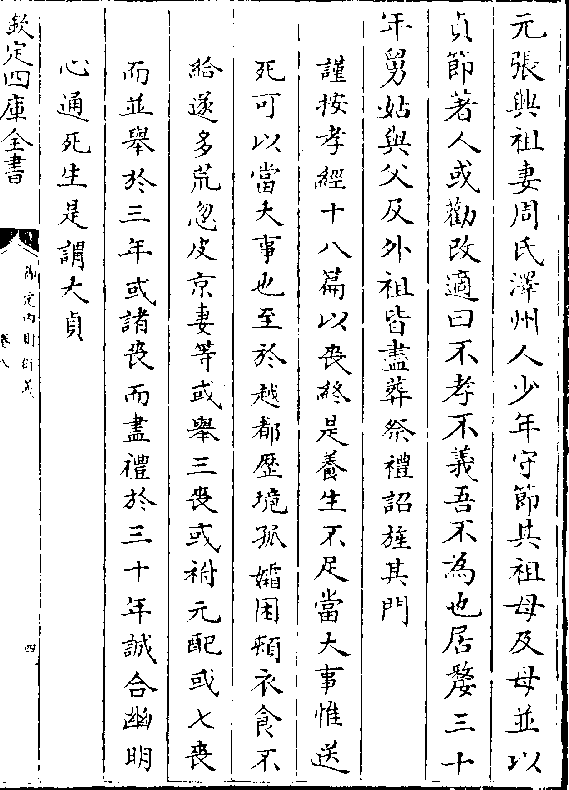 元張興祖妻周氏澤州人少年守節其祖母及母並以
貞節著人或勸改適曰不孝不義吾不為也居嫠三十
年舅姑與父及外祖皆盡葬祭禮詔旌其門
謹按孝經十八篇以喪終是養生不足當大事惟送
死可以當大事也至於越都歴境孤孀困頓衣食不
給遂多荒忽皮京妻等或舉三喪或祔元配或七喪
而並舉於三年或諸喪而盡禮於三十年誠合幽明
心通死生是謂大貞
欽定四庫全書
御定内則衍義
卷八
四